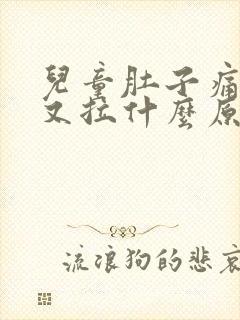 兒童肚子痛
又拉什麼原
流浪狗的悲哀